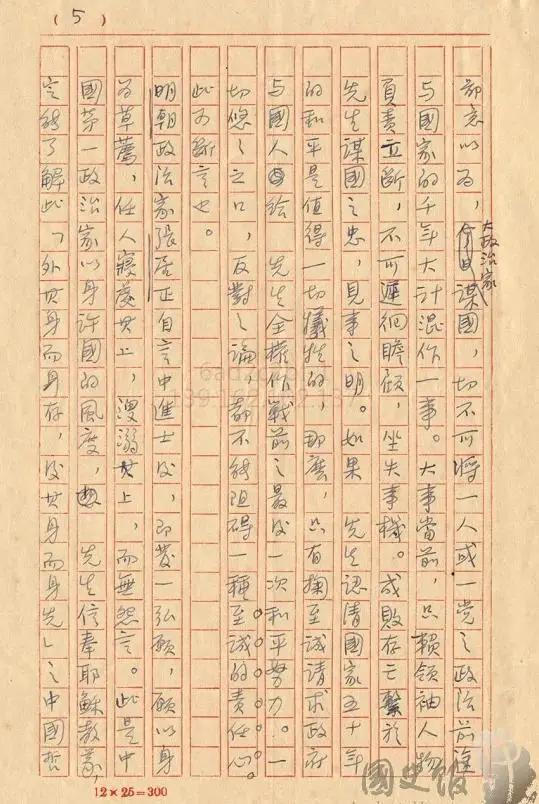 (5)
鄙意以為，大政治家謀國，切不可將一人或一黨之政治前途
与國家的千年大計混作一事。大事當前，只賴領袖人物
負責立斷，不可遲徊瞻顧，坐失事機。成敗存亡繫於
先生謀國之忠，見事之明。如果 先生認清國家五十年
的和平是值得一切犧牲的，那麽，只有掬至誠請求政府
与國人給 先生全權作戰前之最後一次和平努力。一
切悠悠之口，反對之論，都不能阻碍一種至誠的責任心。
此可斷言也。
明朝政治家張居正自言中進士後，即發一弘願，願以身
為草薦，任人寢處其上，溲溺其上，而無怨言。此是中
國第一政治家以身許國的風度， 先生信奉耶穌教義，
定能了解此「外其身而身存，後其身而身先」之中國哲
12×25=300
國史館